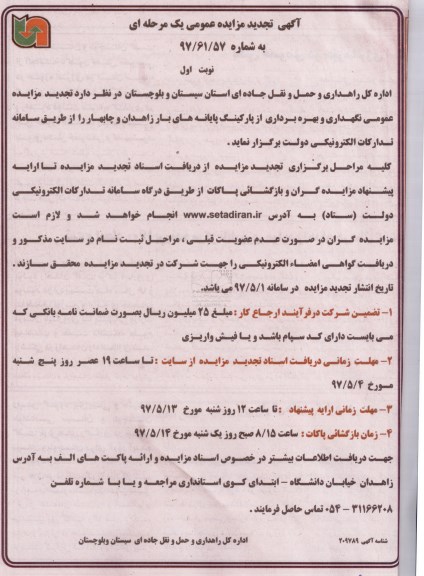 آگهی تجدید مزایده عمومی یک مرحله ای
به شماره ۹۷/۶۱/۵۷
نوبت اول
اداره کل راهداری و حمل و نقل جاده ای استان سیستان و بلوچستان در نظر دارد تجدید مزایده
عمومی نگهداری و بهره برداری از پارکینگ پایانه های بار زاهدان و چابهار را از طریق سامانه
تدارکات الکترونیکی دولت برگزار نماید .
کلیه مراحل برگزاری تجدید مزایده از دریافت اسناد تجدید مزایده تا ارایه
پیشنهاد مزایده گران و بازگشائی پاکات از طریق درگاه سامانه تدارکات الکترونیکی
دولت (ستاد) به آدرس www.setadiran.ir انجام خواهد شد و لازم است
مزایده گران در صورت عدم عضویت قبلی ، مراحل ثبت نام در سایت مذکور و
دریافت گواهی امضاء الکترونیکی را جهت شرکت در تجدید مزایده محقق سازند .
تاریخ انتشار تجدید مزایده در سامانه ۹۷/۵/۱ می باشد.
۱- تضمین شرکت در فرآیند ارجاع کار : مبلغ ۲۵ میلیون ریال بصورت ضمانت نامه بانکی که
می بایست دارای کد سپام باشد و یا فیش واریزی
۲- مهلت زمانی دریافت اسناد تجدید مزایده از سایت : تا ساعت ۱۹ عصر روز پنج شنبه
مورخ ۹۷/۵/۴
۳- مهلت زمانی ارایه پیشنهاد : تا ساعت ۱۲ روز شنبه مورخ ۹۷/۵/۱۳
۴- زمان بازگشائی پاکات : ساعت ۸/۱۵ صبح روز یک شنبه مورخ ۹۷/۵/۱۴
جهت دریافت اطلاعات بیشتر در خصوص اسناد مزایده و ارائه پاکت های الف به آدرس
زاهدان خیابان دانشگاه - ابتدای کوی استانداری مراجعه و یا با شماره تلفن
۳۱۱۶۶۲۰۸ - ۰۵۴ تماس حاصل فرمایند .
شناسه آگهی ۲۰۹۷۸۹
اداره کل راهداری و حمل و نقل جاده ای سیستان وبلوچستان